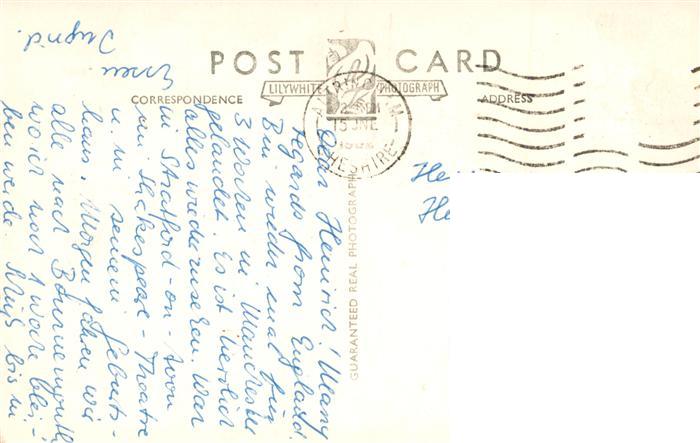 POST CARD
LILYWHITE PHOTOGRAPH
CORRESPONDENCE
ADDRESS
ALTRINCHAM
15 JNE
CHESHIRE
GUARANTEED REAL PHOTOGRAPH
He
He
Dear Heinrich! Many
regards from England.
Bin wieder mal für
3 Wochen in Manchester
gelandet. Es ist herrlich
alles wiederzusehen. War
in Stratford-on-Avon
im Shakespeare-Theatre
u. in seinem Geburts-
haus. Morgen fahren wir
alle nach Bournemouth
wo ich noch 1 Woche blei-
ben werde. Gruß bis in
Essen
Ingrid.